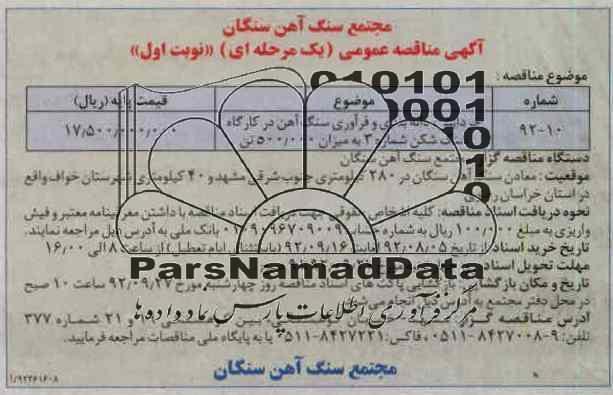 مجتمع سنگ آهن سنگان
آگهی مناقصه عمومی (یک مرحله ای) «نوبت اول»
موضوع مناقصه :
شماره موضوع قیمت پایه (ریال)
۹۲-۱۰ و فرآوری سنگ آهن در کارگاه سنگ شکن شماره ۳ به میزان ۵۰۰/۰۰۰ تن ۱۷/۵۰۰/۰۰۰/۰۰۰
دستگاه مناقصه گزار: مجتمع سنگ آهن سنگان
موقعیت : معادن سنگ آهن سنگان در ۲۸۰ کیلومتری جنوب شرقی مشهد و ۴۰ کیلومتری شهرستان خواف واقع
در استان خراسان رضوی
نحوه دریافت اسناد مناقصه: کلیه اشخاص حقوقی جهت دریافت اسناد مناقصه با داشتن معرفینامه معتبر و فیش
واریزی به مبلغ ۱۰۰/۰۰۰ ریال به شماره حساب بانک ملی به آدرس ذیل مراجعه نمایند.
تاریخ خرید اسناد: از تاریخ ۹۲/۰۸/۰۵ لغایت ۹۲/۰۹/۱۶ (باستثناء ایام تعطیل) از ساعت ۸ الی ۱۶/۰۰
مهلت تحویل اسناد
تاریخ و مکان بازگشایی: بازگشایی پاکت های اسناد مناقصه روز چهارشنبه مورخ ۹۲/۰۹/۲۷ ساعت ۱۰ صبح
در محل دفتر مجتمع به آدرس ذیل انجام می‌شود
آدرس مناقصه گزار: بین و ۲۱ شماره ۳۷۷
تلفن: ۹-۸۴۲۷۰۰۸-۰۵۱۱ ، فاکس: ۸۴۲۷۲۲۱-۰۵۱۱ یا به پایگاه ملی مناقصات مراجعه فرمایید.
مجتمع سنگ آهن سنگان
۱/۹۲۲۶۱۶۰۸
010101
0001
10
1
0
ParsNamadData
مرکز فرآوری اطلاعات پارس نماد داده ها